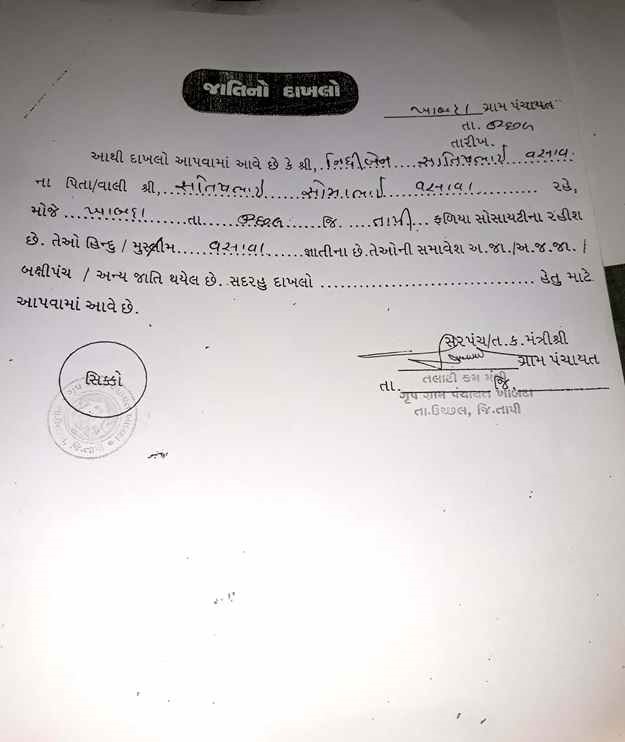 જાતિનો દાખલો
ખાબદા ગ્રામ પંચાયત
તા. ઉચ્છલ
તારીખ.
આથી દાખલો આપવામાં આવે છે કે શ્રી, નિધીબેન સતિષભાઈ વસાવા
ના પિતા/વાલી શ્રી, સતિષભાઈ સોમાભાઈ વસાવા રહે,
મોજે ખાબદા તા. ઉચ્છલ જિ. તાપી ફળિયા સોસાયટીના રહીશ
છે. તેઓ હિન્દુ / મુસ્લીમ વસાવા જ્ઞાતીના છે. તેઓની સમાવેશ અ.જા./અ.જ.જા. /
બક્ષીપંચ / અન્ય જાતિ થયેલ છે. સદરહુ દાખલો હેતુ માટે
આપવામાં આવે છે.
સરપંચ/ત.ક.મંત્રીશ્રી
ગ્રામ પંચાયત
તા. જિ
તલાટી કમ મંત્રી
ગૃપ ગ્રામ પંચાયત ખાબદા
તા.ઉચ્છલ, જિ.તાપી
સિક્કો